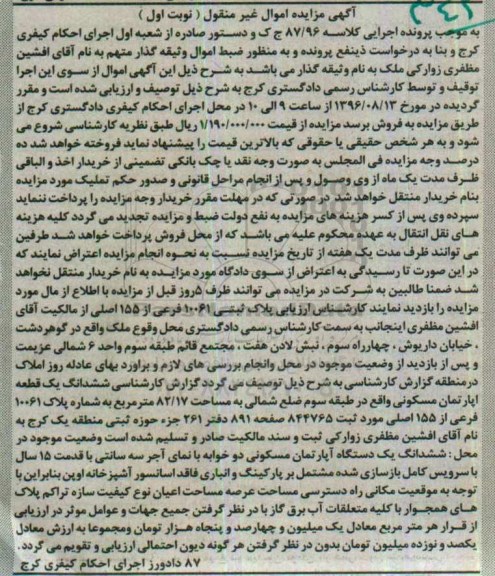 ۳۴۲
آگهی مزایده اموال غیر منقول ( نوبت اول )
به موجب پرونده اجرایی کلاسه ۸۷/۹۶ ج ک و دستور صادره از شعبه اول اجرای احکام کیفری
کرج و بنا به درخواست ذینفع پرونده و به منظور ضبط اموال وثیقه گذار متهم به نام آقای افشین
مظفری زوارکی ملک به نام وثیقه گذار می باشد به شرح ذیل این آگهی اموال از سوی این اجرا
توقیف و توسط کارشناس رسمی دادگستری کرج به شرح ذیل توصیف و ارزیابی شده است و مقرر
گردیده در مورخ ۱۳۹۶/۰۸/۱۳ از ساعت ۹ الی ۱۰ در محل اجرای احکام کیفری دادگستری کرج از
طریق مزایده به فروش برسد مزایده از قیمت ۱/۱۹۰/۰۰۰/۰۰۰ ریال طبق نظریه کارشناسی شروع می
شود و به هر شخص حقیقی یا حقوقی که بالاترین قیمت را پیشنهاد نماید فروخته خواهد شد ده
درصد وجه مزایده فی المجلس به صورت وجه نقد یا چک بانکی تضمینی از خریدار اخذ و الباقی
ظرف مدت یک ماه از وی وصول و پس از انجام مراحل قانونی و صدور حکم تملیک مورد مزایده
بنام خریدار منتقل خواهد شد در صورتی که در مهلت مقرر خریدار وجه مزایده را پرداخت ننماید
سپرده وی پس از کسر هزینه های مزایده به نفع دولت ضبط و مزایده تجدید می گردد کلیه هزینه
های نقل انتقال به عهده محکوم علیه می باشد که از محل فروش پرداخت خواهد شد طرفین
می توانند ظرف مدت یک هفته از تاریخ مزایده نسبت به نحوه انجام مزایده اعتراض نمایند که
در این صورت تا رسیدگی به اعتراض از سوی دادگاه مورد مزایده به نام خریدار منتقل نخواهد
شد ضمنا طالبین به شرکت در مزایده می توانند ظرف ۵روز قبل از مزایده با اطلاع از مال مورد
مزایده را بازدید نمایند کارشناس ارزیابی پلاک ثبتی ۱۰۰۶۱ فرعی از ۱۵۵ اصلی از مالکیت آقای
افشین مظفری اینجانب به سمت کارشناس رسمی دادگستری محل وقوع ملک واقع در گوهردشت
، خیابان داریوش ، چهارراه سوم ، نبش لادن هفت ، مجتمع قائم طبقه سوم واحد ۶ شمالی عزیمت
و پس از بازدید از وضعیت موجود در محل وانجام بررسی های لازم و براورد بهای عادله روز املاک
درمنطقه گزارش کارشناسی به شرح ذیل توصیف می گردد گزارش کارشناسی ششدانگ یک قطعه
اپارتمان مسکونی واقع در طبقه سوم ضلع شمالی به مساحت ۸۲/۱۷ مترمربع به شماره پلاک ۱۰۰۶۱
فرعی از ۱۵۵ اصلی مورد ثبت ۸۴۴۷۶۵ صفحه ۸۹۱ دفتر ۲۶۱ جزء حوزه ثبتی منطقه یک کرج به
نام آقای افشین مظفری زوارکی ثبت و سند مالکیت صادر و تسلیم شده است وضعیت موجود در
محل : ششدانگ یک دستگاه آپارتمان مسکونی دو خوابه با نمای آجر سه سانتی با قدمت ۱۵ سال
با سرویس کامل بازسازی شده مشتمل بر پارکینگ و انباری فاقد اسانسور آشپزخانه اوپن بنابراین با
توجه به موقعیت مکانی راه دسترسی مساحت عرصه مساحت اعیان نوع کیفیت سازه تراکم پلاک
های همجوار با کلیه متعلقات آب برق گاز با در نظر گرفتن جمیع جهات و عوامل موثر در ارزیابی
از قرار هر متر مربع معادل یک میلیون و چهارصد و پنجاه هزار تومان ومجموعا به ارزش معادل
یکصد و نوزده میلیون تومان بدون در نظر گرفتن هر گونه دیون احتمالی ارزیابی و تقویم می گردد .
۸۷ دادورز اجرای احکام کیفری کرج